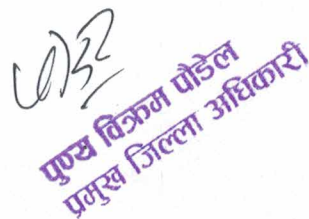 पुण्य विक्रम पौडेल
प्रमुख जिल्ला अधिकारी